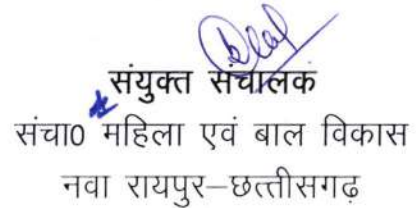 संयुक्त संचालक
संचा0 महिला एवं बाल विकास
नवा रायपुर–छत्तीसगढ़